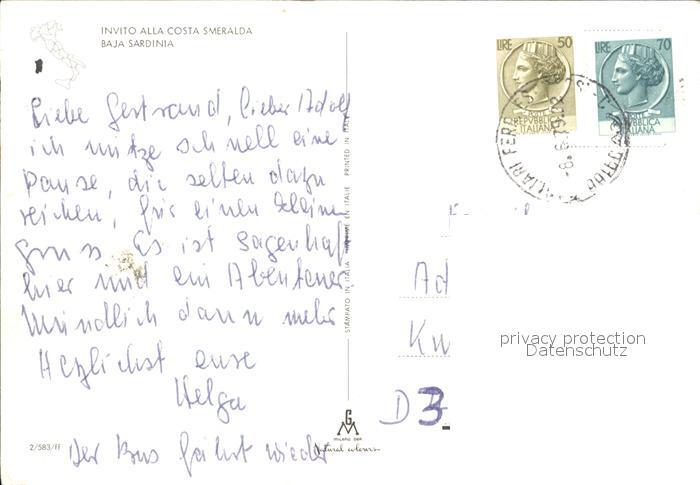 INVITO ALLA COSTA SMERALDA
BAJA SARDINIA
Liebe Gertraud, lieber Adolf
ich nutze schnell eine
Pause, die selten dazu
reichen, für einen kleinen
Gruss. Es ist sagenhaft
hier und ein Abenteuer,
Mündlich dann mehr
Herzlichst eure
Helga
Der Bus fährt wieder
2/583/ff
STAMPATO IN ITALIA IMPRIMÉ EN ITALIE PRINTED IN ITALY
GM
MILANO DEP.
Natural colours
LIRE 50
REPVBBLICA
ITALIANA
LIRE 70
REPVBBLICA
ITALIANA
Ad
D 3
privacy protection
Datenschutz